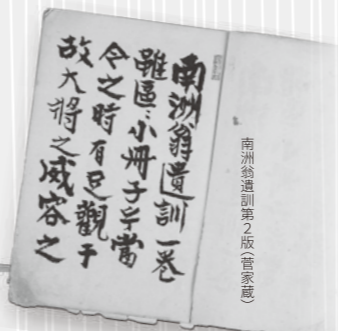 南洲翁遺訓一巻
雖區〻小冊子乎當
今之時有足觀于
故大将之威容之
南洲翁遺訓第2版(菅家蔵)